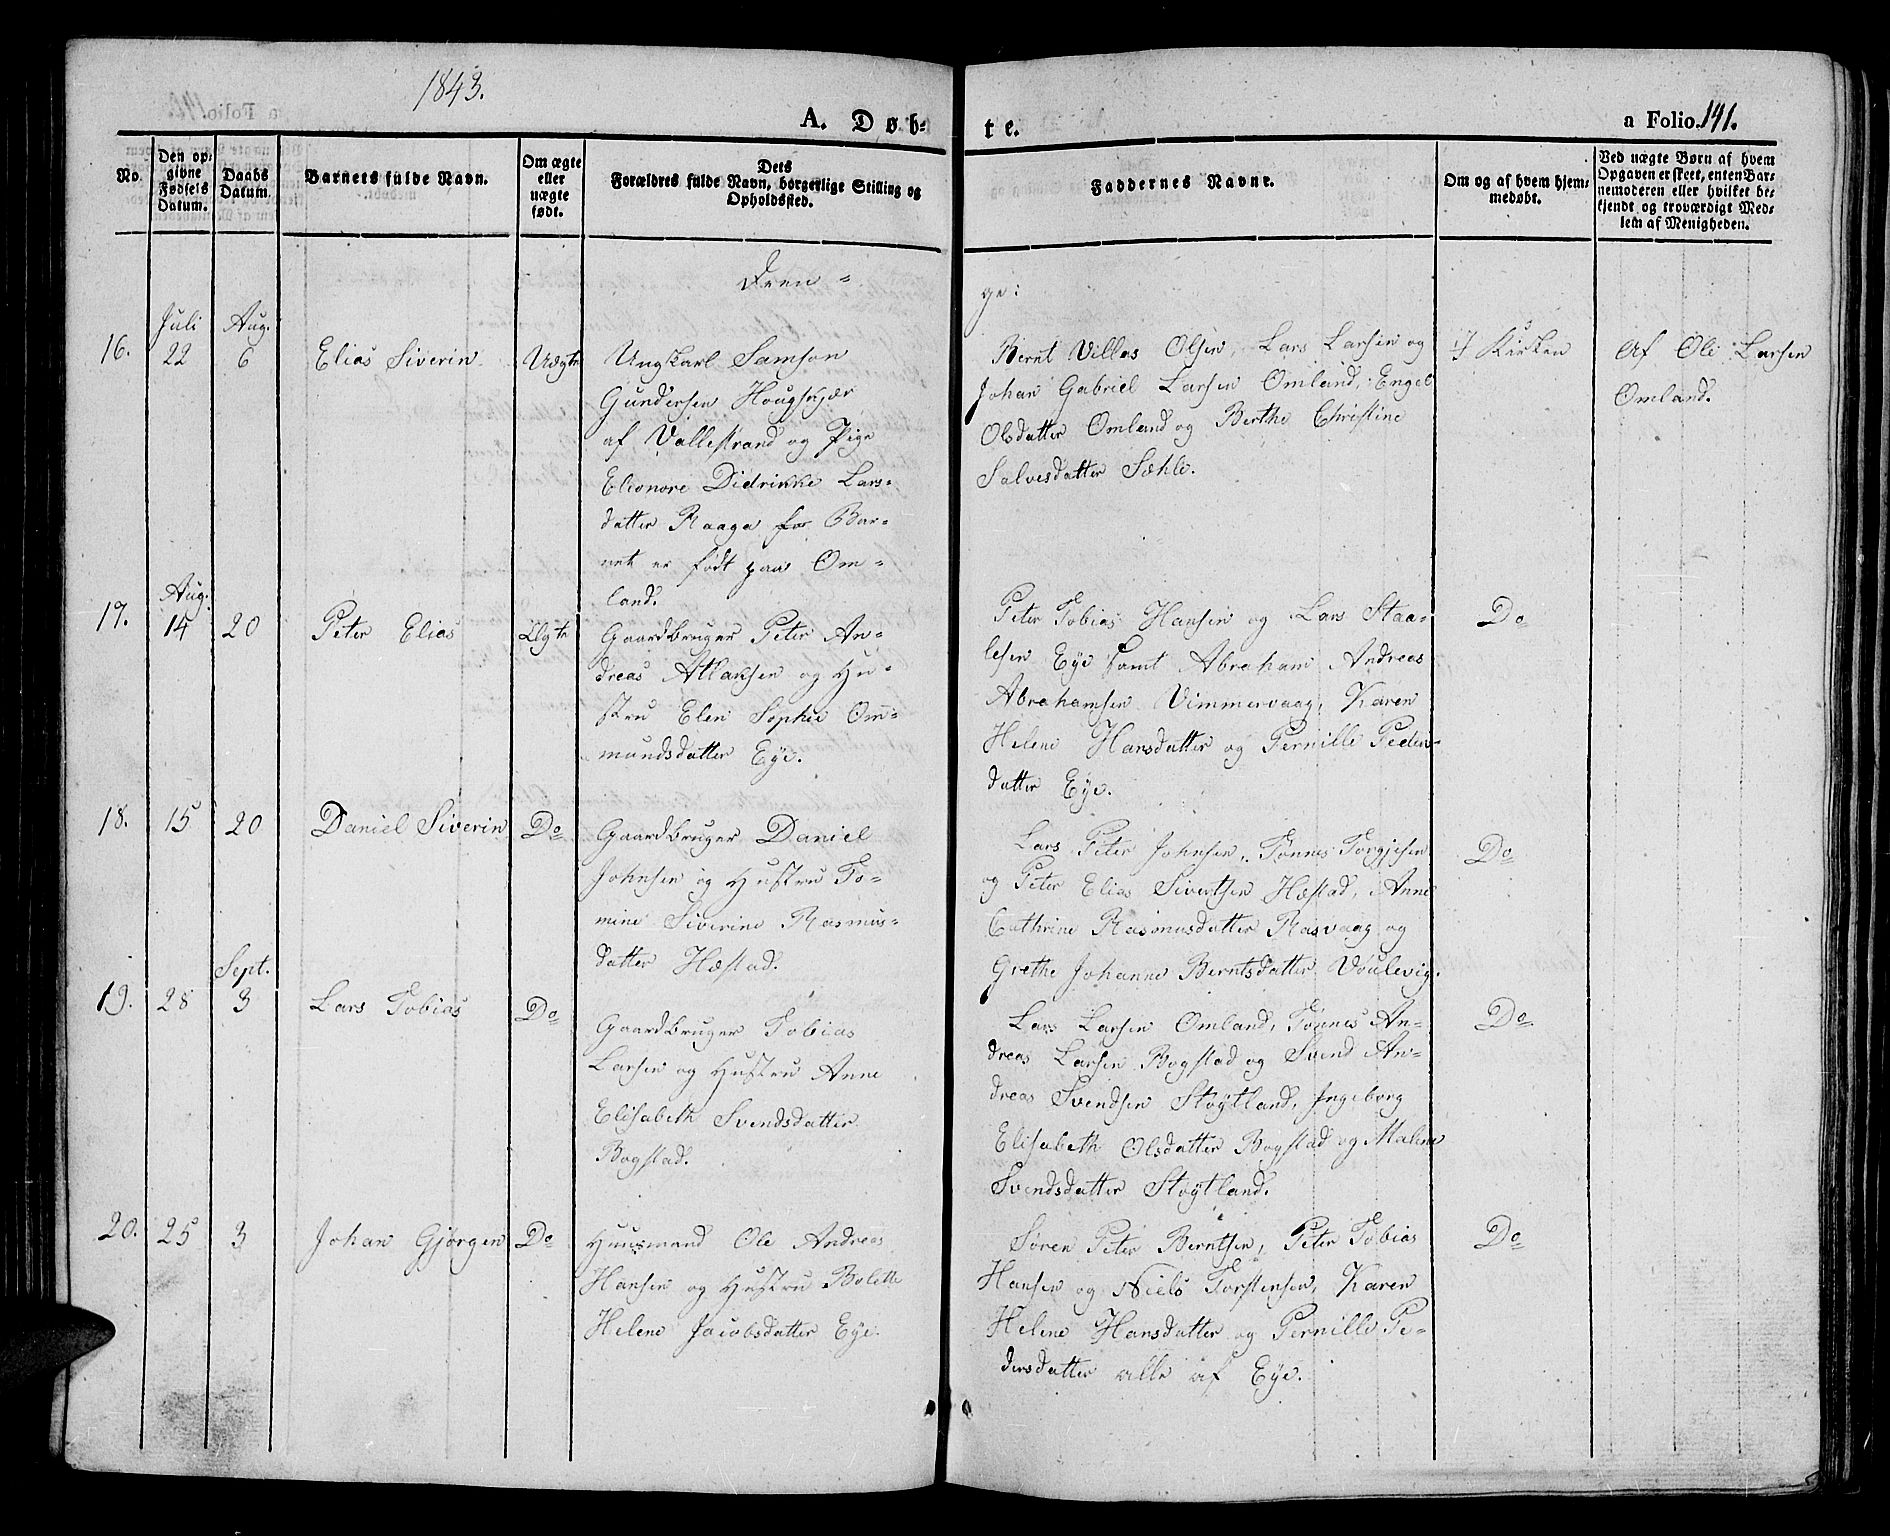 1843.
A. Døb-
te.
a Folio. 141.
No.
Den op-
givne
Fødsels
Datum.
Daabs
Datum.
Barnets fulde Navn.
Om ægte
eller
uægte
født.
Dets
Forældres fulde Navn, borgerlige Stilling og
Opholdssted.
Faddernes Navne.
Om og af hvem hjem-
medøbt.
Ved uægte Børn af hvem
Opgaven er skeet, enten Bar-
nemoderen eller hvilket be-
kjendt og troværdigt Med-
lem af Menigheden.
Dren =
ge:
16.
Juli
22
Aug.
6
Elias Siverin
Uægte
Ungkarl Samson
Gundersen Hougskjær
af Vallestrand og Pige
Elionore Didrikke Lars-
datter Raaga for Bar-
net er født paa Om-
land.
Bernt Villas Olsen, Lars Larsen og
Johan Gabriel Larsen Omland, Engel
Olsdatter Omland og Berthe Christine
Salvesdatter Sæhle.
I Kirken
Af Ole Larsen
Omland.
17.
Aug.
14
20
Peter Elias
Ægte
Gaardbruger Peter An-
dreas Atlaksen og Hu-
stru Elen Sophie Om-
mundsdatter Eye.
Peter Tobias Hansen og Lars Staa-
lesen Eye samt Abraham Andreas
Abrahamsen Vimmervaag, Karen
Helene Hansdatter og Pernille Peders-
datter Eye.
Do
18.
15
20
Daniel Siverin
Do
Gaardbruger Daniel
Johnsen og Hustru To-
mine Siverine Rasmus-
datter Hæstad.
Lars Peter Johnsen, Tønnes Torgjesen
og Peter Elias Sivertsen Hæstad, Anne
Cathrine Rasmusdatter Rasvaag og
Grethe Johanne Berntsdatter Voulevig.
Do
19.
28
Sept.
3
Lars Tobias
Do
Gaardbruger Tobias
Larsen og Hustru Anne
Elisabeth Svendsdatter
Bogstad.
Lars Larsen Omland, Tønnes An-
dreas Larsen Bogstad og Svend An-
dreas Svendsen Støytland, Ingeborg
Elisabeth Olsdatter Bogstad og Malene
Svendsdatter Støytland.
Do
20.
25
3
Johan Gjørgen
Do
Huusmand Ole Andreas
Hansen og Hustru Bolette
Helene Jacobsdatter Eye.
Søren Peter Berntsen, Peter Tobias
Hansen og Niels Torstensen, Karen
Helene Hansdatter og Pernille Pe-
dersdatter alle af Eye.
Do